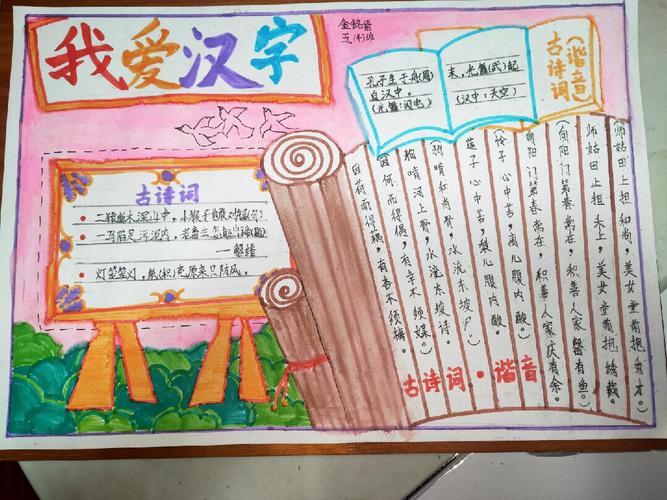 我爱汉字
金铭紫
五(4)班
孔子生于舟(周)
自汉中。
(光舞:闪电)
末,光舞(武)起
(汉中:天空)
古诗词
(谐音)
古诗词
二猿断木深山中,小猴子也敢对锯(句)
一马陷足污泥内,老畜生怎能出蹄(题)
—解缙
灯笼笼灯,纸(枳)壳原来只防风。
(师姑田上担和尚,美女堂前抱秀才。
师姑田上担禾上,美女堂前抱绣裁。)
(向阳门第春常在,积善人家罄有鱼。)
向阳门第春常在,积善人家庆有余。
(怜子心中苦,离儿腹内酸。)
莲子心中苦,梨儿腹内酸。
狗啃河上骨,水流东坡诗。
因何而得偶,有幸不须媒。)
因荷而得藕,有杏不须梅。
古诗词·谐音